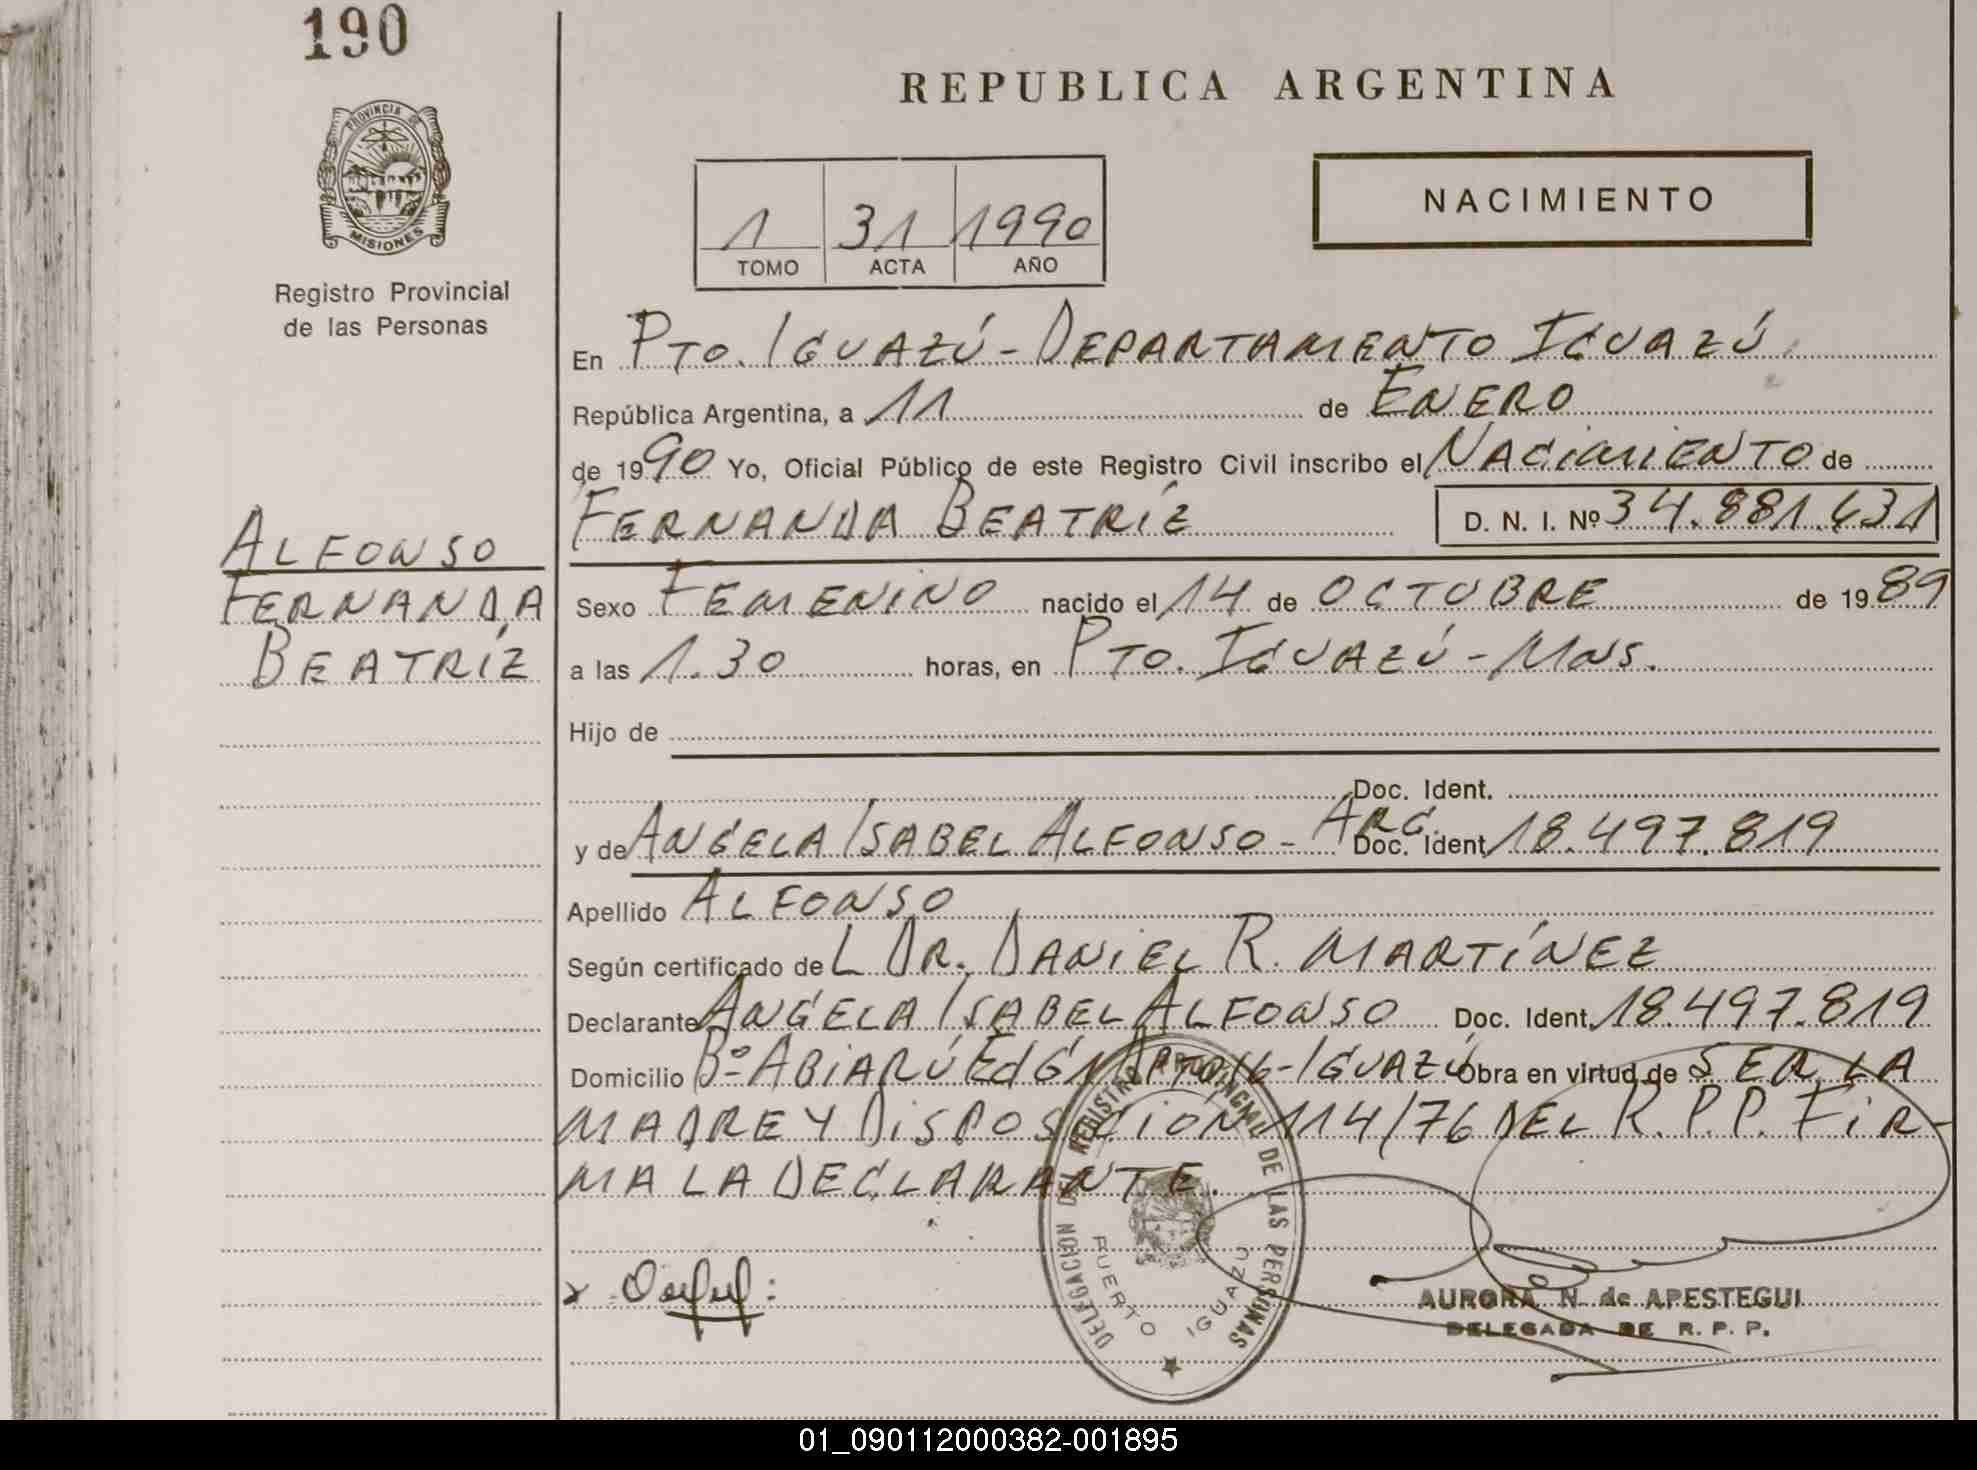 190
PROVINCIA DE
MISIONES
Registro Provincial
de las Personas
ALFONSO
FERNANDA
BEATRÍZ
REPUBLICA ARGENTINA
1 31 1990
TOMO ACTA AÑO
NACIMIENTO
En PTO. IGUAZÚ - DEPARTAMENTO IGUAZÚ.
República Argentina, a 11 de ENERO
de 1990 Yo, Oficial Público de este Registro Civil inscribo el NACIMIENTO de
FERNANDA BEATRÍZ D. N. I. Nº 34.881.631
Sexo FEMENINO nacido el 14 de OCTUBRE de 1989
a las 1.30 horas, en PTO. IGUAZÚ - MNS.
Hijo de
Doc. Ident.
y de ANGELA ISABEL ALFONSO - ARG. Doc. Ident. 18.497.819
Apellido ALFONSO
Según certificado de L DR. DANIEL R. MARTÍNEZ
Declarante ANGELA ISABEL ALFONSO Doc. Ident. 18.497.819
Domicilio Bº ABIARÚ Ed G IGUAZÚ Obra en virtud de SER LA
MADRE Y DISPOSICION 114/76 DEL R.P.P. FIR-
MA LA DECLARANTE.
DELEGACION DEL REGISTRO PROVINCIAL DE LAS PERSONAS
PUERTO IGUAZU
AURORA N. de APESTEGUI
DELEGADA DE R. P. P.
01_090112000382-001895